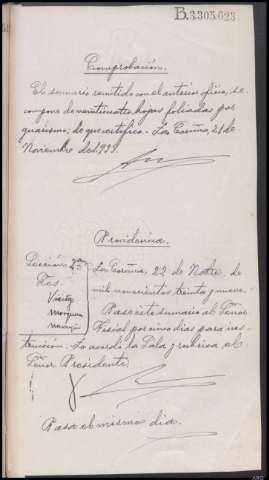 B.3.305.623
Comprobación.
El sumario remitido con el anterior oficio, se
compone de veinticuatro hojas foliadas por
guarismo, de que certifico.- La Coruña, 21 de
Noviembre de 1939.
Providencia.
Sección 2ª
La Coruña, 22 de Novbre. de
mil novecientos treinta y nueve.-
Pase este sumario al Señor
Fiscal por cinco días para ins-
trucción. Lo acordó la Sala y rubrica el
Señor Presidente.
Pasa el mismo día.